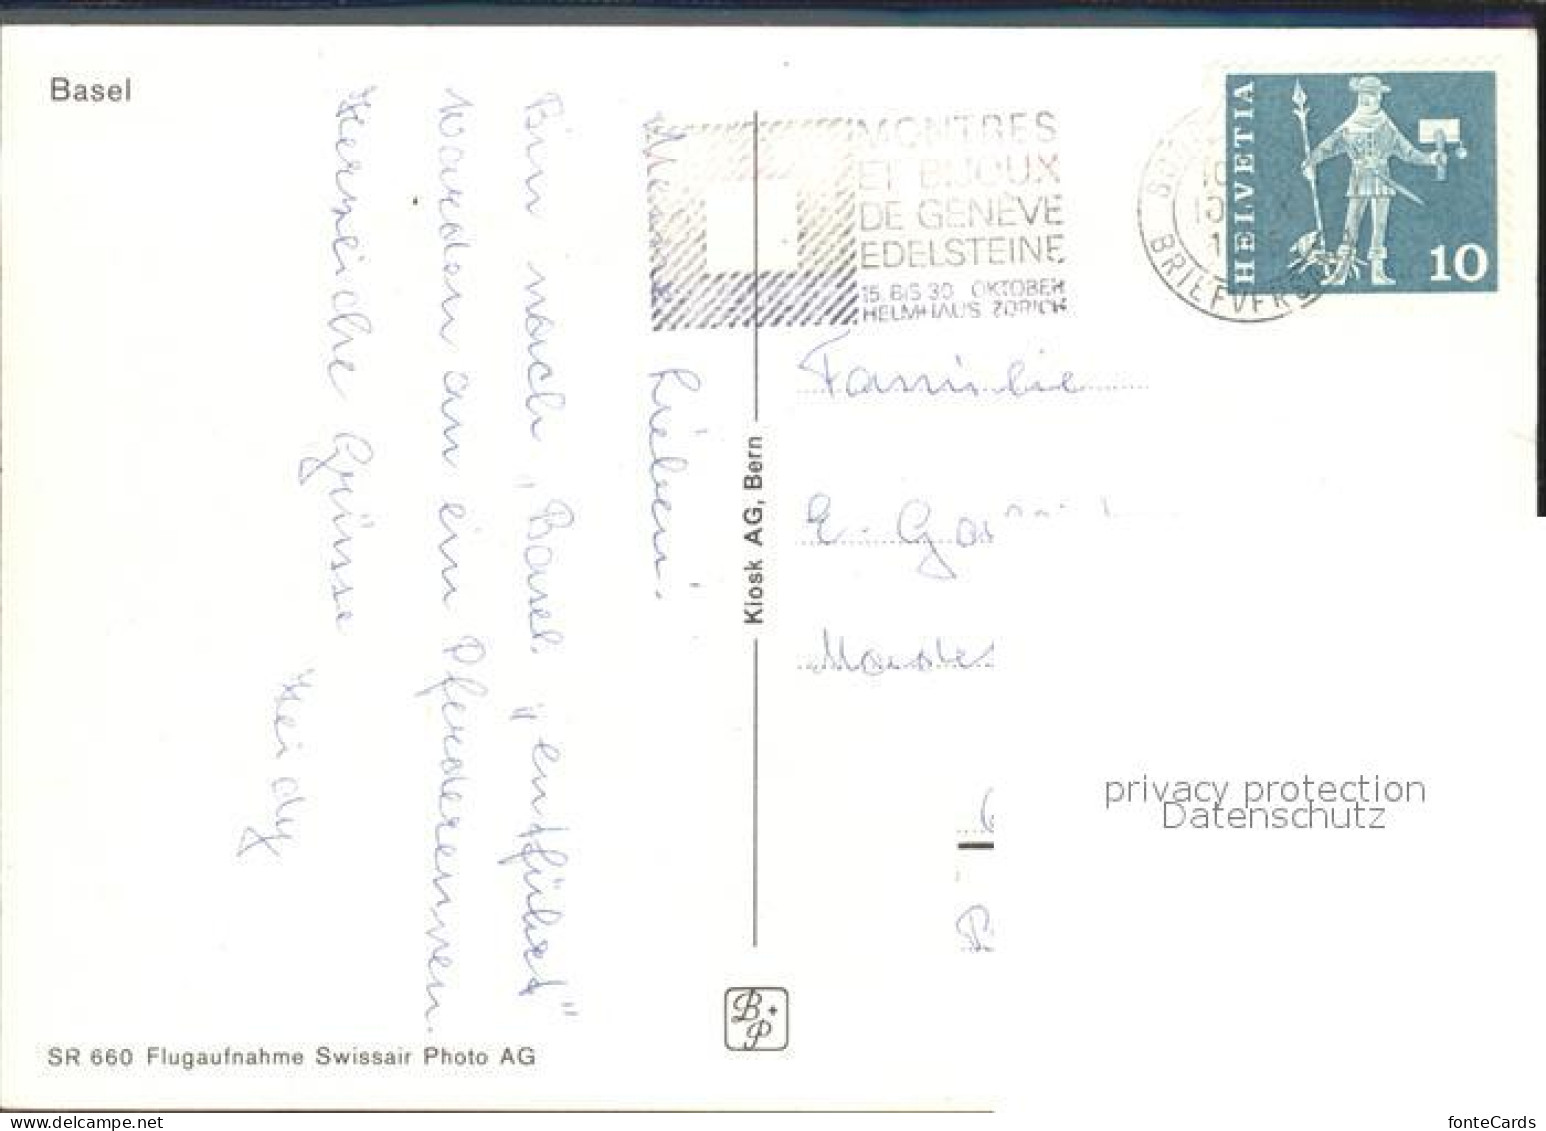 Basel
Meine Lieben!
Bin nach „Basel „entführt"
worden an ein Pferderennen.
Herzliche Grüsse
Heidy
MONTRES
ET BIJOUX
DE GENÈVE
EDELSTEINE
15. BIS 30. OKTOBER
HELMHAUS ZÜRICH
BRIEFVERS
HELVETIA
10
Familie
E.
Kiosk AG, Bern
B+P
SR 660 Flugaufnahme Swissair Photo AG
privacy protection
Datenschutz
delcampe.net
fonteCards